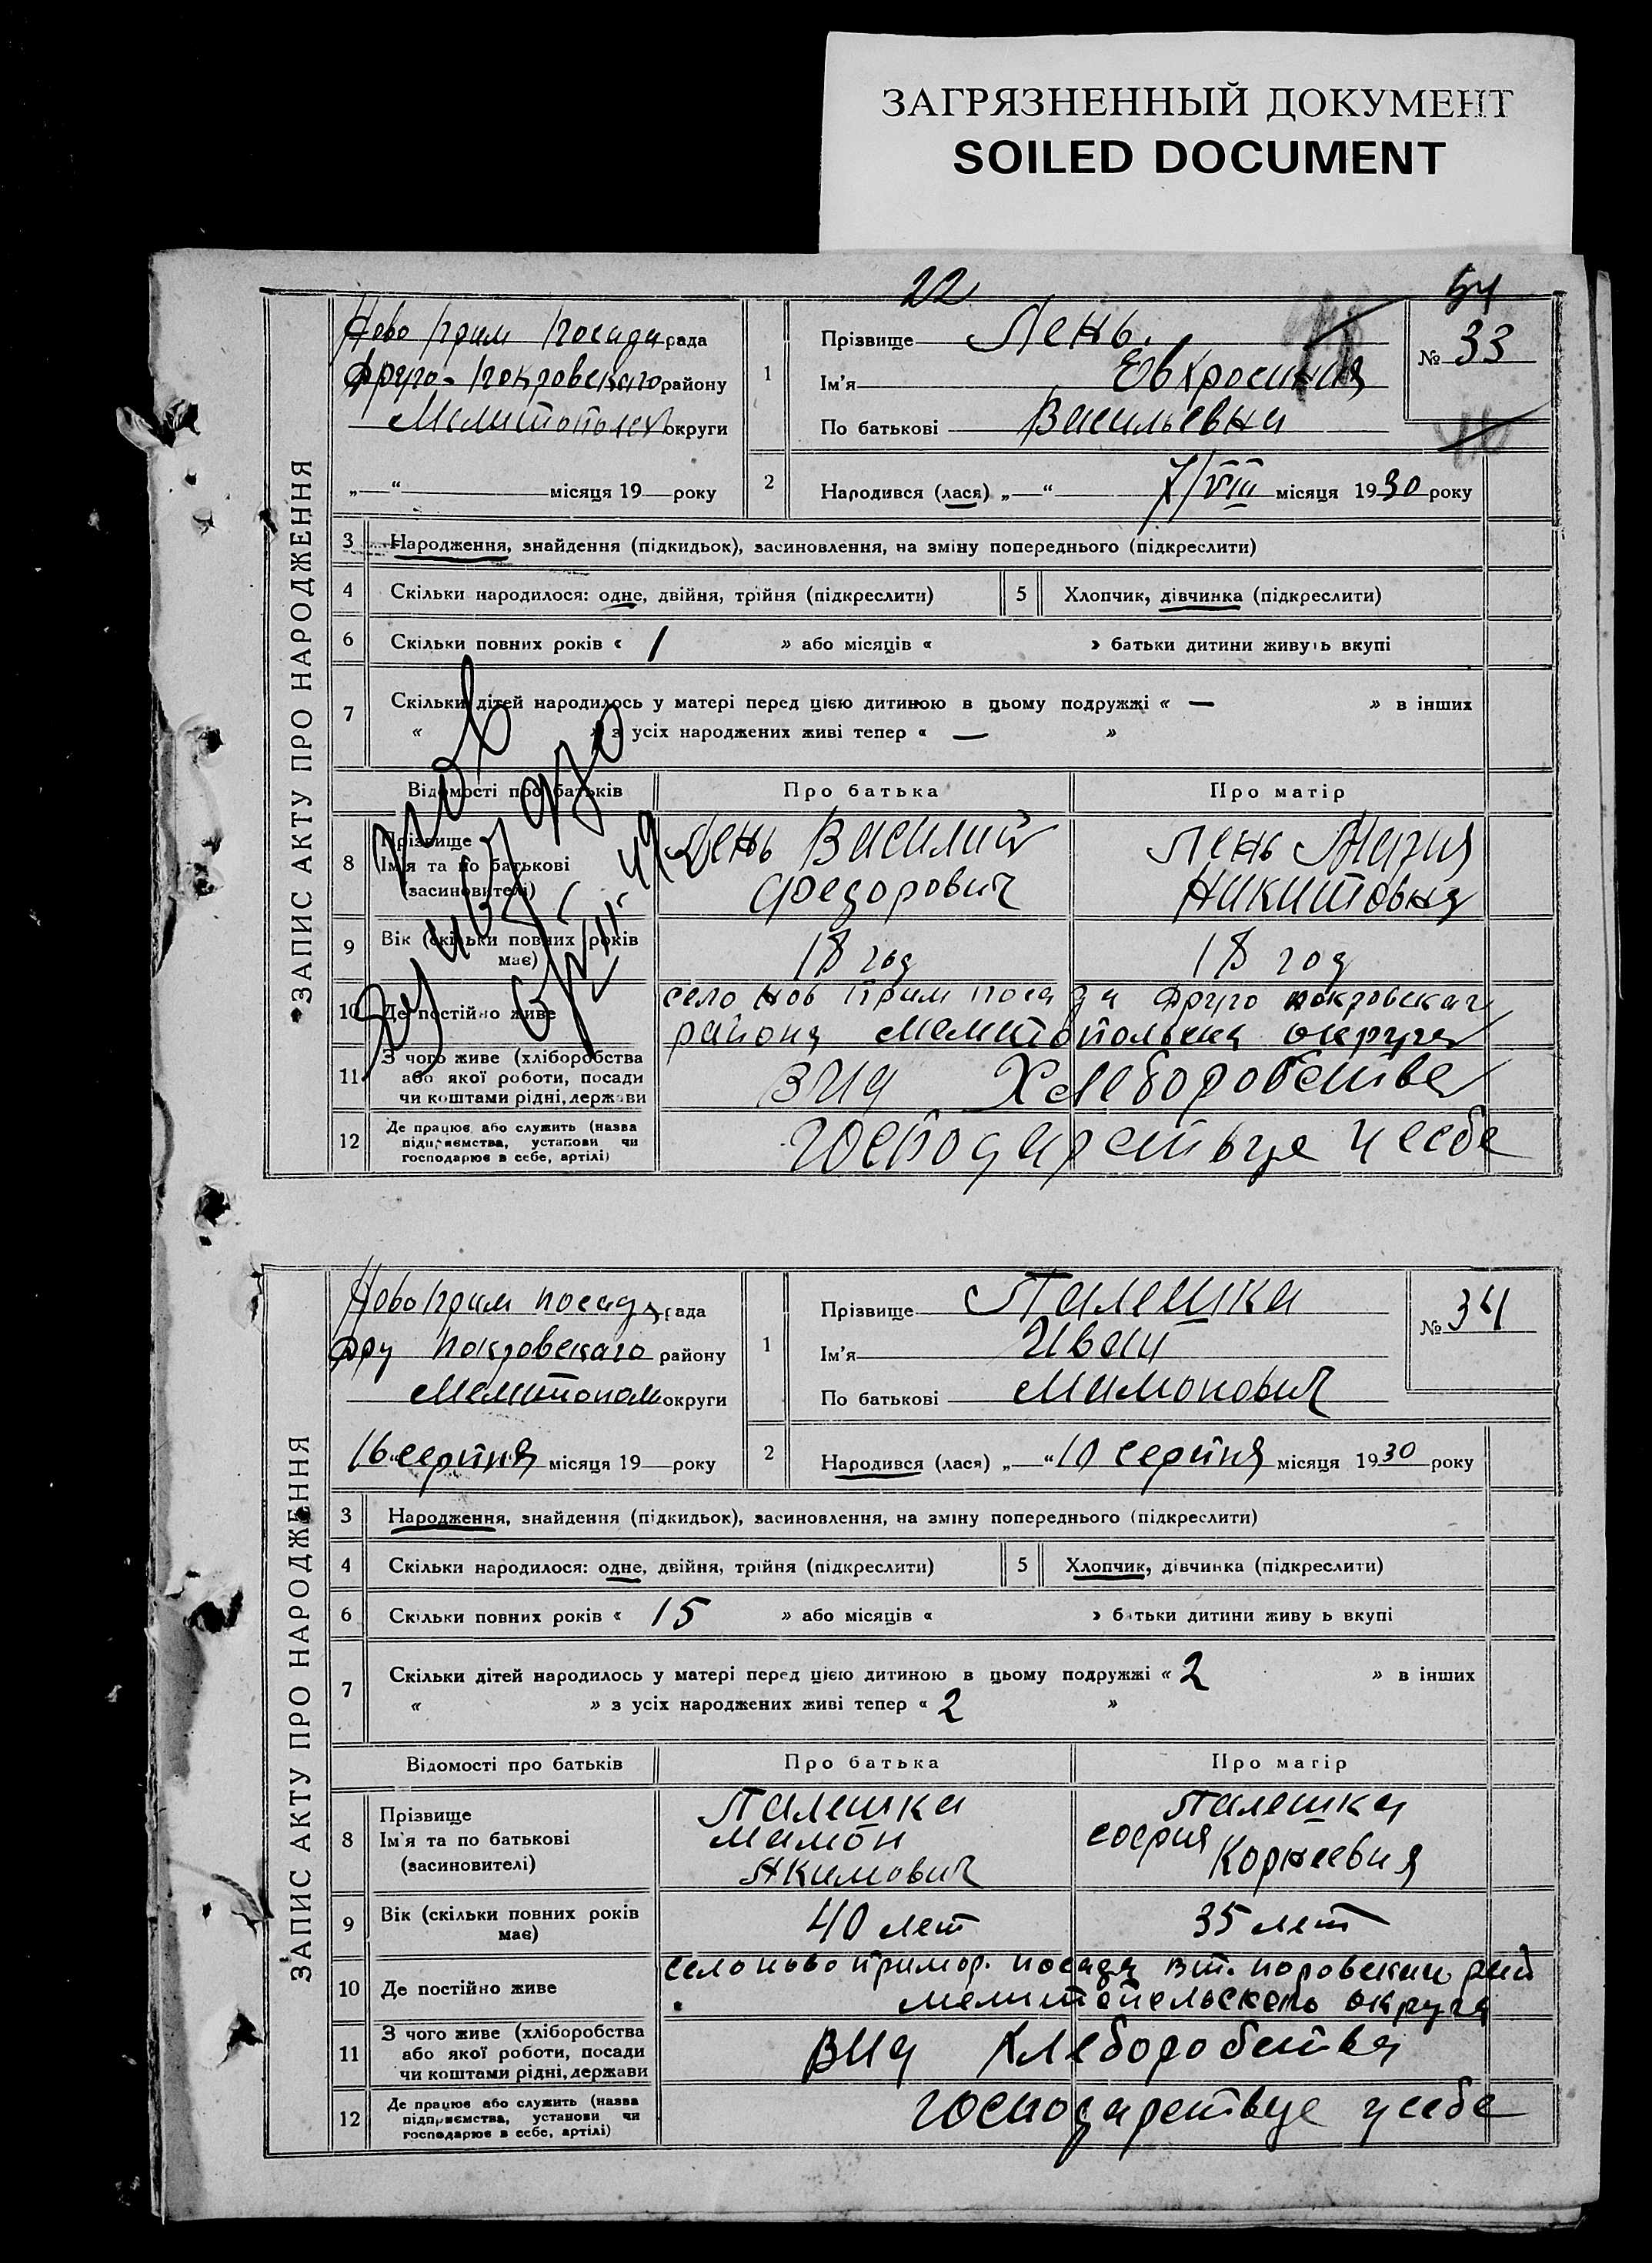 ЗАГРЯЗНЕННЫЙ ДОКУМЕНТ
SOILED DOCUMENT
22
ЗАПИС АКТУ ПРО НАРОДЖЕННЯ
Ново Прим Посада рада
Друго-Покровскаго району
Мелитополск округи
„—“ місяця 19 року
1
Прізвище Лень.
Ім'я Евкросиная
По батькові Васильевна
№ 33
2
Народився (лася) „—“ 7/VIII місяця 1930 року
3 Народження, знайдення (підкидьок), засиновлення, на зміну попереднього (підкреслити)
4 Скільки народилося: одне, двійня, трійня (підкреслити) 5 Хлопчик, дівчинка (підкреслити)
6 Скільки повних років « 1 » або місяців « » батьки дитини живуть вкупі
7 Скільки дітей народилось у матері перед цією дитиною в цьому подружжі « — » в інших
« » з усіх народжених живі тепер « — »
Відомості про батьків Про батька Про матір
8 Прізвище
Ім'я та по батькові
(засиновителі)
Лень Василий
Федорович
Лень Мария
Никитовна
9 Вік (скільки повних років
має)
18 год 18 год
10 Де постійно живе
село Нов Прим Посада Друго покровскаг
района Мелитопольска округа
11 З чого живе (хліборобства
або якої роботи, посади
чи коштами рідні, держави
Хлеборобства
12 Де працює або служить (назва
підприємства, установи чи
господарює в себе, артілі)
господарствуе у себе
ЗАПИС АКТУ ПРО НАРОДЖЕННЯ
Ново Прим посада рада
Дру Покровскаго району
Мелитопол округи
16 серпня місяця 19 року
1
Прізвище Палешка
Ім'я Иван
По батькові Мамонович
№ 34
2
Народився (лася) „—“ 10 серпня місяця 1930 року
3 Народження, знайдення (підкидьок), засиновлення, на зміну попереднього (підкреслити)
4 Скільки народилося: одне, двійня, трійня (підкреслити) 5 Хлопчик, дівчинка (підкреслити)
6 Скільки повних років « 15 » або місяців « » батьки дитини живу ь вкупі
7 Скільки дітей народилось у матері перед цією дитиною в цьому подружжі « 2 » в інших
« » з усіх народжених живі тепер « 2 »
Відомості про батьків Про батька Про матір
8 Прізвище
Ім'я та по батькові
(засиновителі)
Палешка
Мамон
Акимович
Палешка
София
Корнеевна
9 Вік (скільки повних років
має)
40 лет 35 лет
10 Де постійно живе
село ново примор. посада вт. поровский рай
мелитопельского округа
11 З чого живе (хліборобства
або якої роботи, посади
чи коштами рідні, держави
Хлеборобства
12 Де працює або служить (назва
підприємства, установи чи
господарює в себе, артілі)
господарствуе у себе